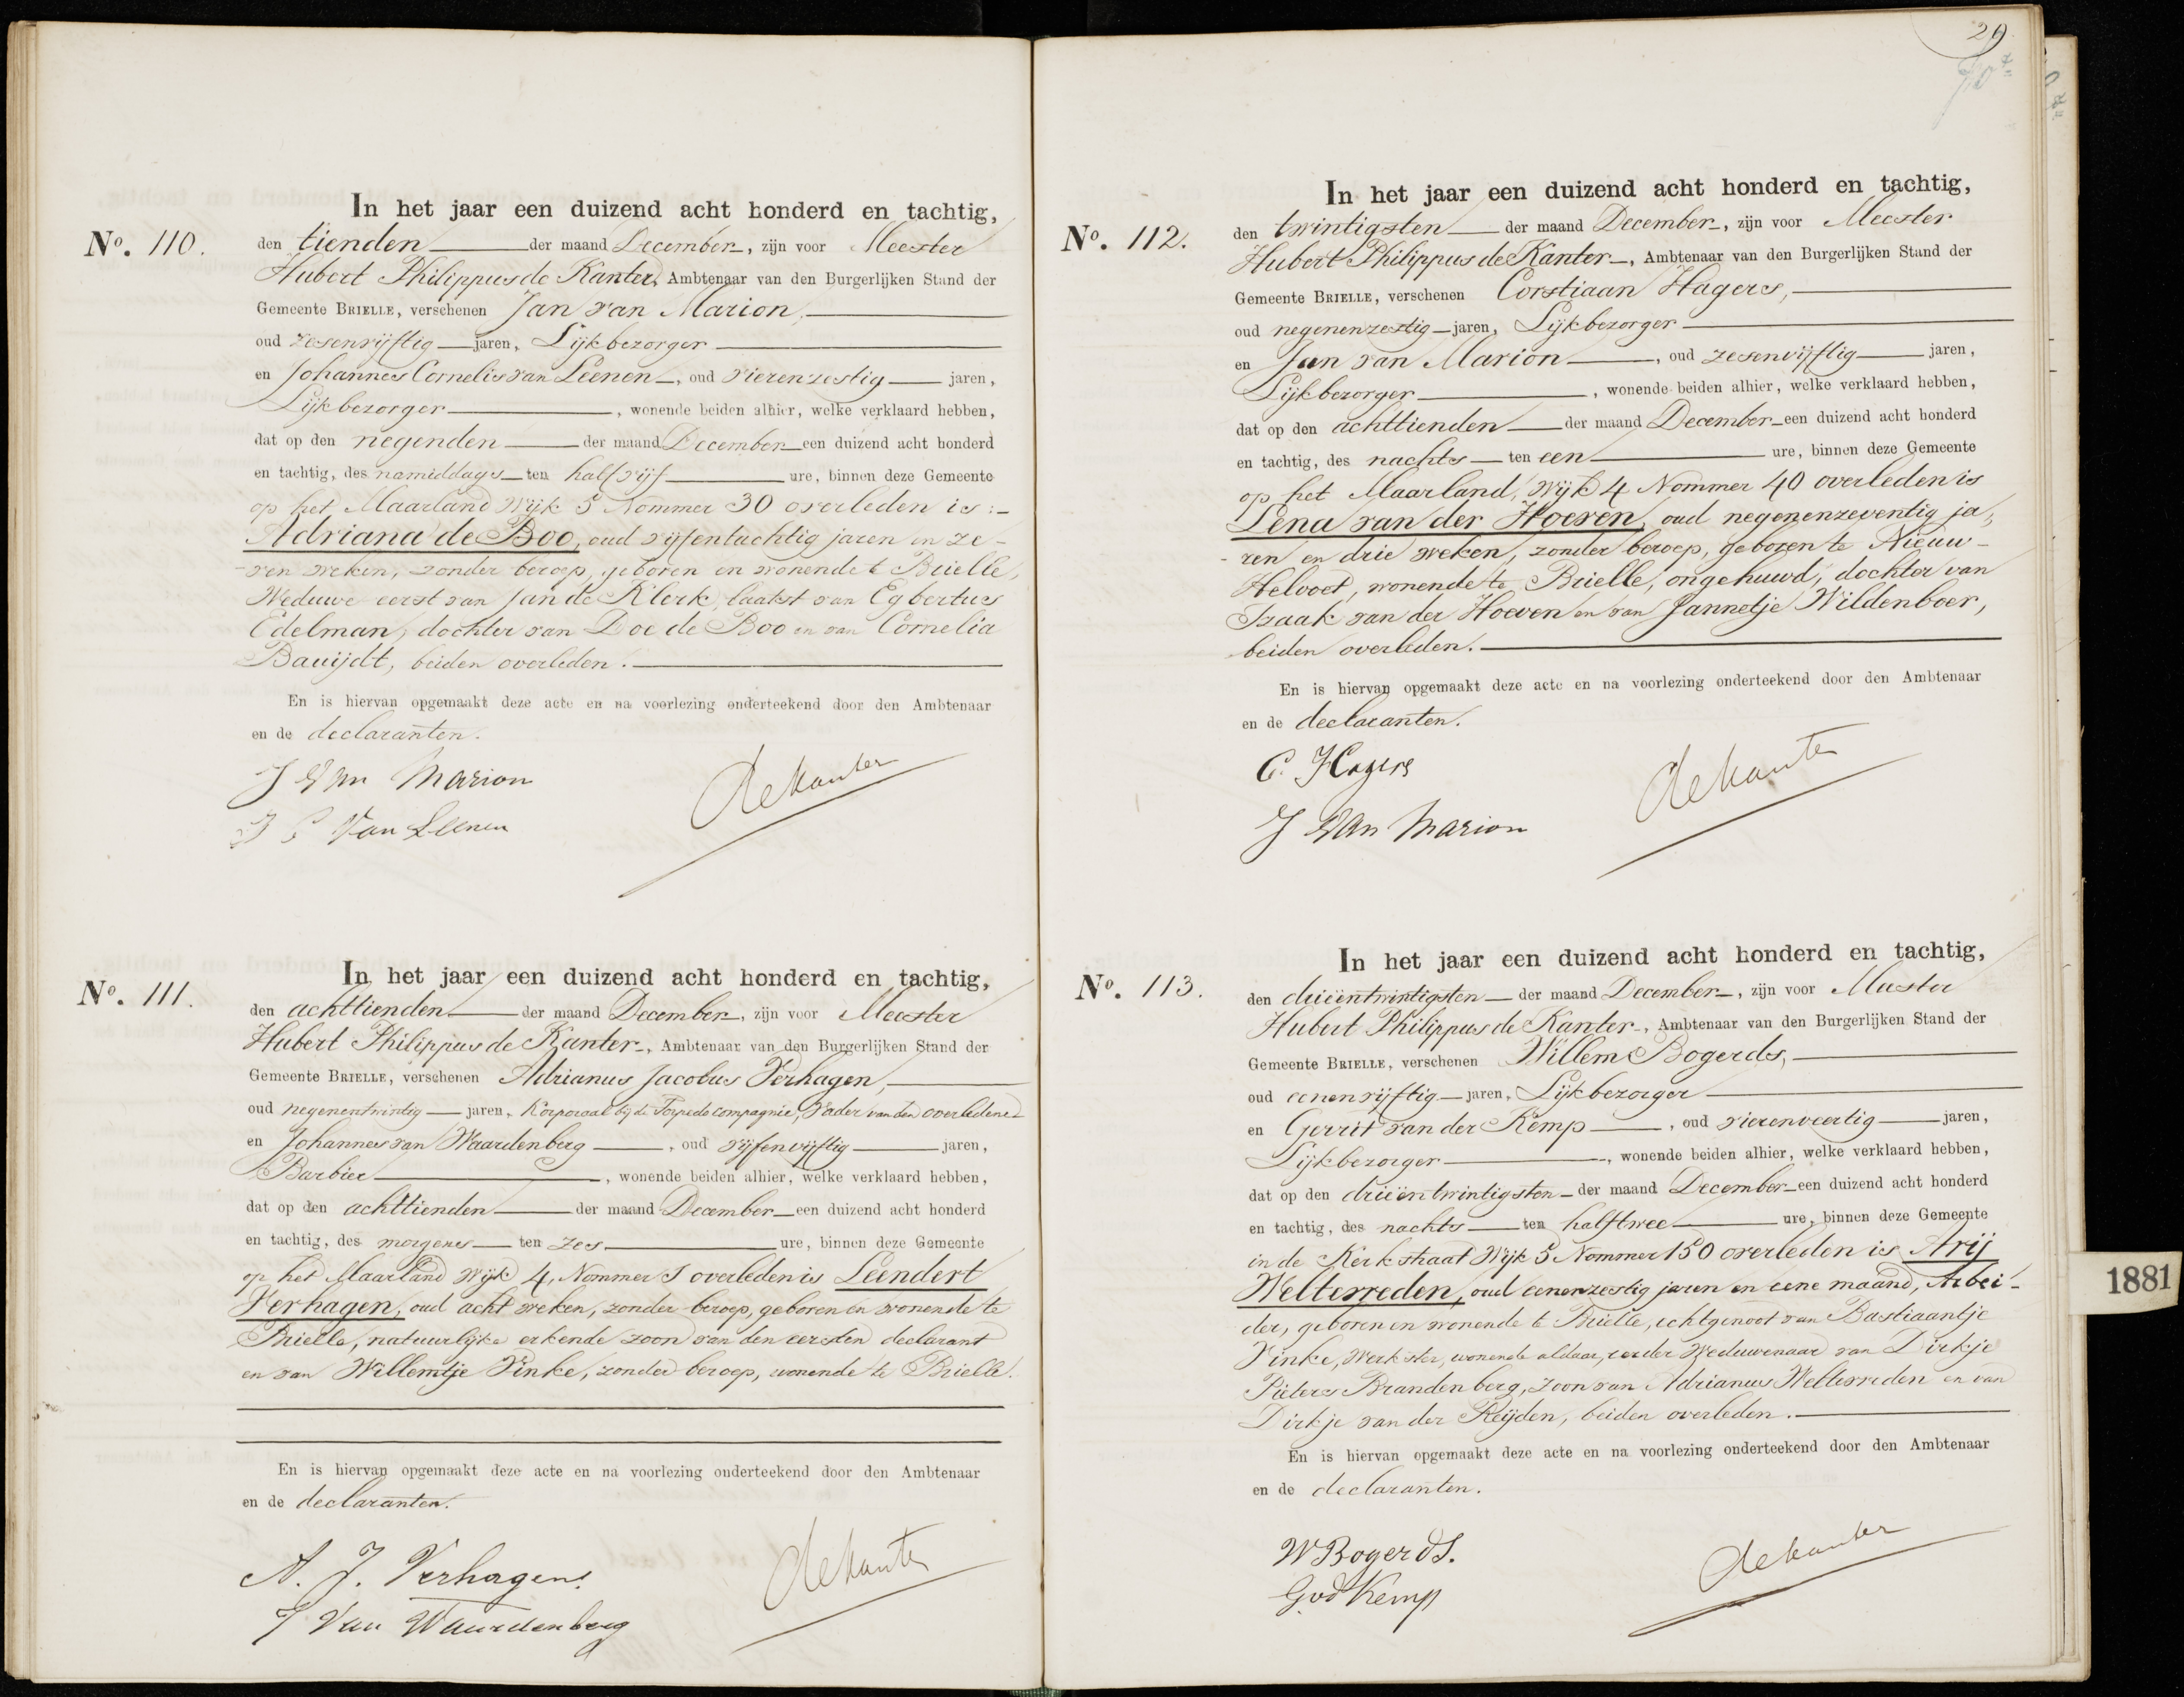 No. 110.
In het jaar een duizend acht honderd en tachtig,
den tienden der maand December, zijn voor Meester
Hubert Philippus de Kanter, Ambtenaar van den Burgerlijken Stand der
Gemeente BRIELLE, verschenen Jan van Marion,
oud zesenvijftig jaren, Lijkbezorger
en Johannes Cornelis van Leenen, oud vierenzestig jaren,
Lijkbezorger, wonende beiden alhier, welke verklaard hebben,
dat op den negenden der maand December een duizend acht honderd
en tachtig, des namiddags ten half vijf ure, binnen deze Gemeente
op het Maarland Wijk 5 Nommer 30 overleden is:
Adriana de Boo, oud vijfentachtig jaren en ze-
ven weken, zonder beroep, geboren en wonende te Brielle,
Weduwe eerst van Jan de Klerk, laatst van Egbertus
Edelman, dochter van Doe de Boo en van Cornelia
Bauijdt, beiden overleden.
En is hiervan opgemaakt deze acte en na voorlezing onderteekend door den Ambtenaar
en de declaranten.
J Van Marion
J C Van Leenen
de Kanter
No. 111.
In het jaar een duizend acht honderd en tachtig,
den achttienden der maand December, zijn voor Meester
Hubert Philippus de Kanter, Ambtenaar van den Burgerlijken Stand der
Gemeente BRIELLE, verschenen Adrianus Jacobus Verhagen,
oud negenentwintig jaren, Korporaal bij de Torpedo compagnie, vader van den overledene
en Johannes van Waardenberg, oud vijfenvijftig jaren,
Barbier, wonende beiden alhier, welke verklaard hebben,
dat op den achttienden der maand December een duizend acht honderd
en tachtig, des morgens ten zes ure, binnen deze Gemeente
op het Maarland Wijk 4, Nommer 5 overleden is Leendert
Verhagen, oud acht weken, zonder beroep, geboren en wonende te
Brielle, natuurlijke erkende zoon van den eersten declarant
en van Willemtje Vinke, zonder beroep, wonende te Brielle.
En is hiervan opgemaakt deze acte en na voorlezing onderteekend door den Ambtenaar
en de declaranten.
A. J. Verhagen.
J Van Waardenberg
de Kanter
29
No. 112.
In het jaar een duizend acht honderd en tachtig,
den twintigsten der maand December, zijn voor Meester
Hubert Philippus de Kanter, Ambtenaar van den Burgerlijken Stand der
Gemeente BRIELLE, verschenen Corstiaan Hagers,
oud negenenzestig jaren, Lijkbezorger
en Jan van Marion, oud zesenvijftig jaren,
Lijkbezorger, wonende beiden alhier, welke verklaard hebben,
dat op den achttienden der maand December een duizend acht honderd
en tachtig, des nachts ten een ure, binnen deze Gemeente
op het Maarland, Wijk 4 Nommer 40 overleden is
Lena van der Hoeven, oud negenenzeventig ja-
ren en drie weken, zonder beroep, geboren te Nieuw-
Helvoet, wonende te Brielle, ongehuwd, dochter van
Izaak van der Hoeven en van Jannetje Wildenboer,
beiden overleden.
En is hiervan opgemaakt deze acte en na voorlezing onderteekend door den Ambtenaar
en de declaranten.
C. Hagers
J Van Marion
de Kanter
No. 113.
In het jaar een duizend acht honderd en tachtig,
den drieëntwintigsten der maand December, zijn voor Meester
Hubert Philippus de Kanter, Ambtenaar van den Burgerlijken Stand der
Gemeente BRIELLE, verschenen Willem Bogerds,
oud eenenvijftig jaren, Lijkbezorger
en Gerrit van der Kemp, oud vierenveertig jaren,
Lijkbezorger, wonende beiden alhier, welke verklaard hebben,
dat op den drieëntwintigsten der maand December een duizend acht honderd
en tachtig, des nachts ten halftwee ure, binnen deze Gemeente
in de Kerkstraat Wijk 5 Nommer 150 overleden is Arij
Weltevreden, oud eenenzestig jaren en eene maand, Arbei-
der, geboren en wonende te Brielle, echtgenoot van Bastiaantje
Vinke, Werkster, wonende aldaar, eerder Weduwenaar van Dirkje
Pieters Brandenberg, zoon van Adrianus Weltevreden en van
Dirkje van der Reijden, beiden overleden.
En is hiervan opgemaakt deze acte en na voorlezing onderteekend door den Ambtenaar
en de declaranten.
W Bogerds.
G vd Kemp
de Kanter
1881